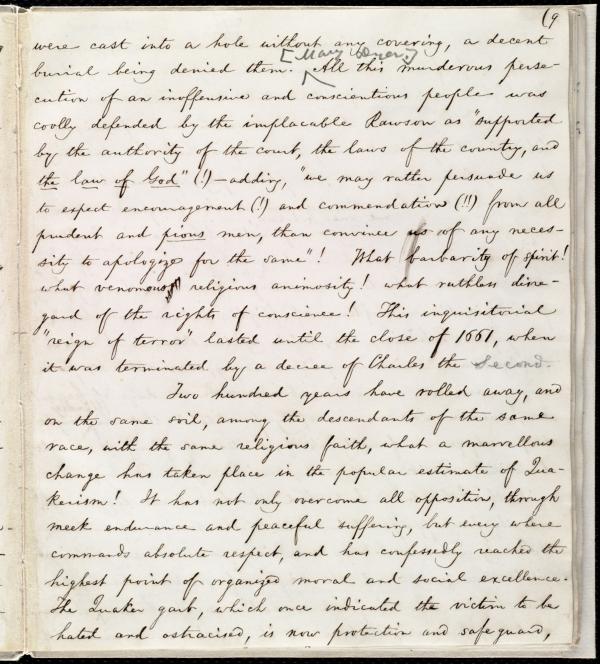 (9
were cast into a hole without any covering, a decent
[Mary Dyer.]
burial being denied them. All this murderous perse-
cution of an inoffensive and conscientious people was
coolly defended by the implacable Rawson as "supported
by the authority of the court, the laws of the country, and
the law of God" (!)—adding, "we may rather persuade us
to expect encouragement (!) and commendation (!!) from all
prudent and pious men, than convince us of any neces-
sity to apologize for the same"! What barbarity of spirit!
what venomous religious animosity! what ruthless disre-
gard of the rights of conscience! This inquisitorial
"reign of terror" lasted until the close of 1661, when
it was terminated by a decree of Charles the Second.
Two hundred years have rolled away, and
on the same soil, among the descendants of the same
race, with the same religious faith, what a marvellous
change has taken place in the popular estimate of Qua-
kerism! It has not only overcome all opposition, through
meek endurance and peaceful suffering, but every where
commands absolute respect, and has confessedly reached the
highest point of organized moral and social excellence.
The Quaker garb, which once indicated the victim to be
hated and ostracised, is now protection and safeguard,